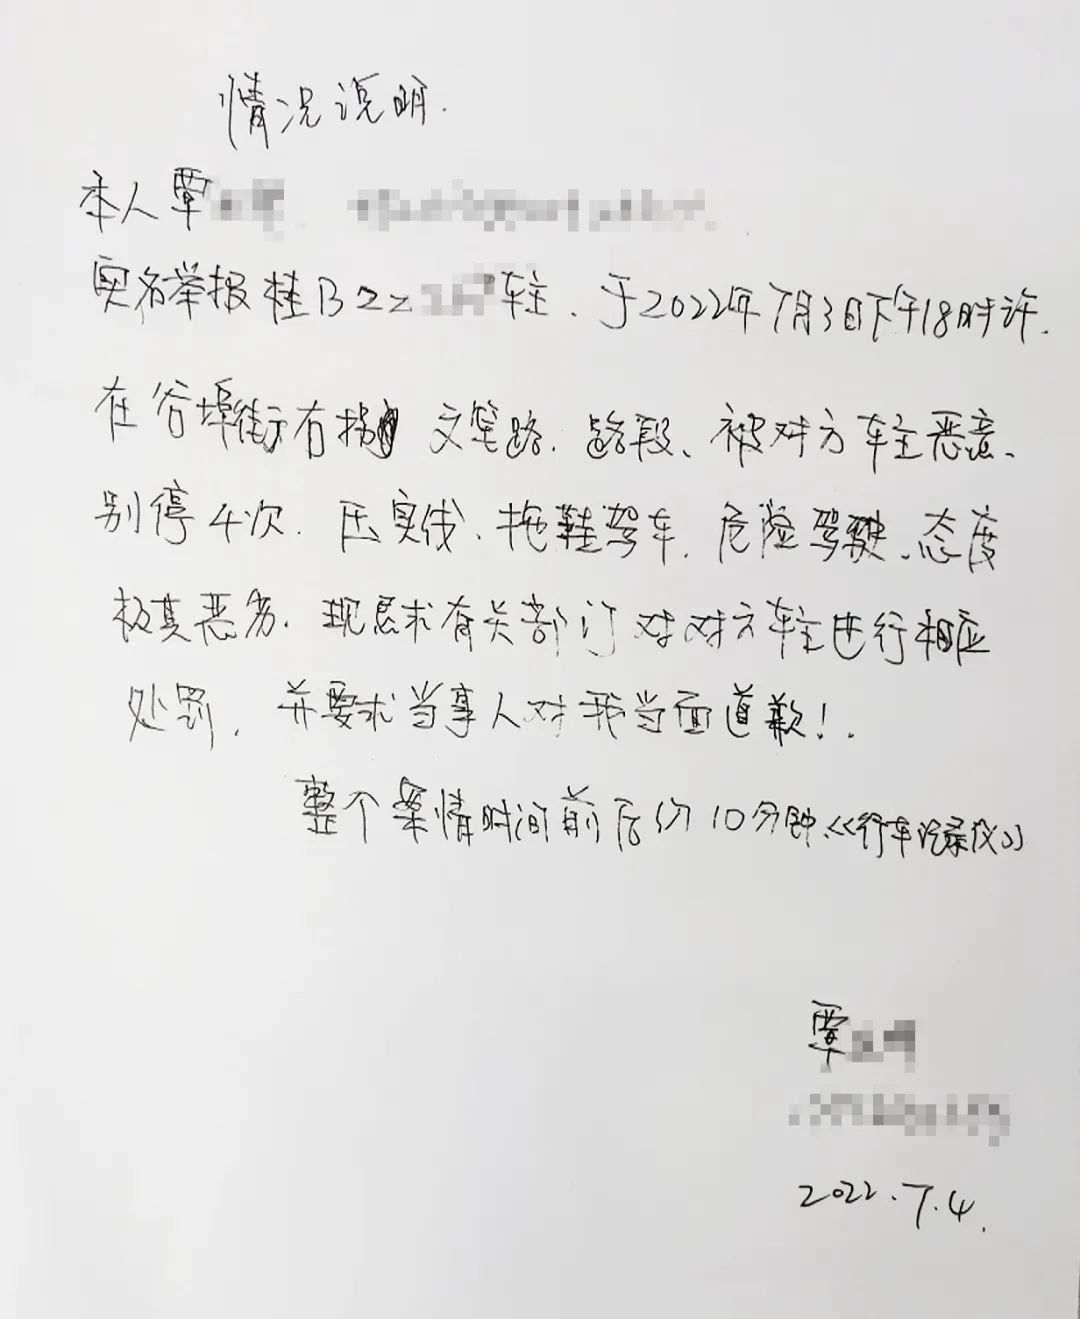 情况说明.
本人覃
实名举报桂B22 车主、于2022年7月3日下午18时许.
在谷埠街右拐 文笔路.路段、被对方车主恶意、
别停4次.压实线、拖鞋驾车.危险驾驶、态度
极其恶劣.现恳求有关部门对对方车主进行相应
处罚.并要求当事人对我当面道歉!.
整个案情时间前后约10分钟《行车记录仪》
覃
2022.7.4.